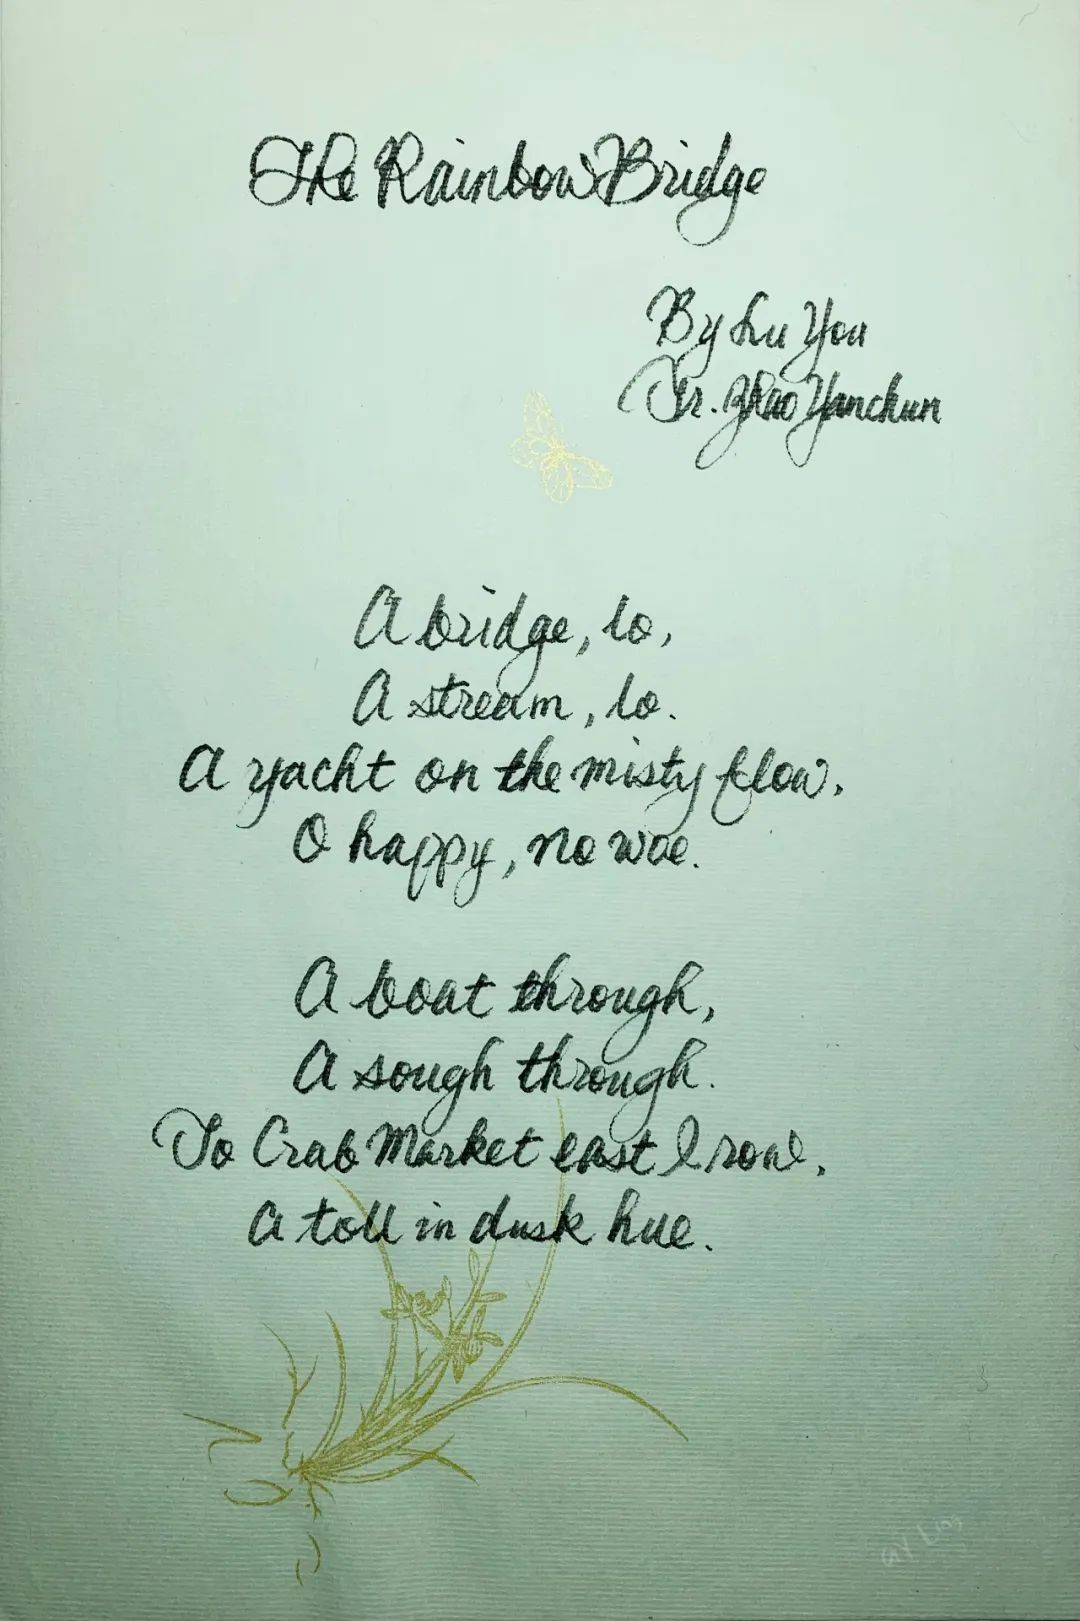 The Rainbow Bridge
By Lu You
Tr. Zhao Yanchun
A bridge, lo,
A stream, lo.
A yacht on the misty flow,
O happy, no woe.
A boat through,
A sough through.
To Crab Market east I row,
A toll in dusk hue.